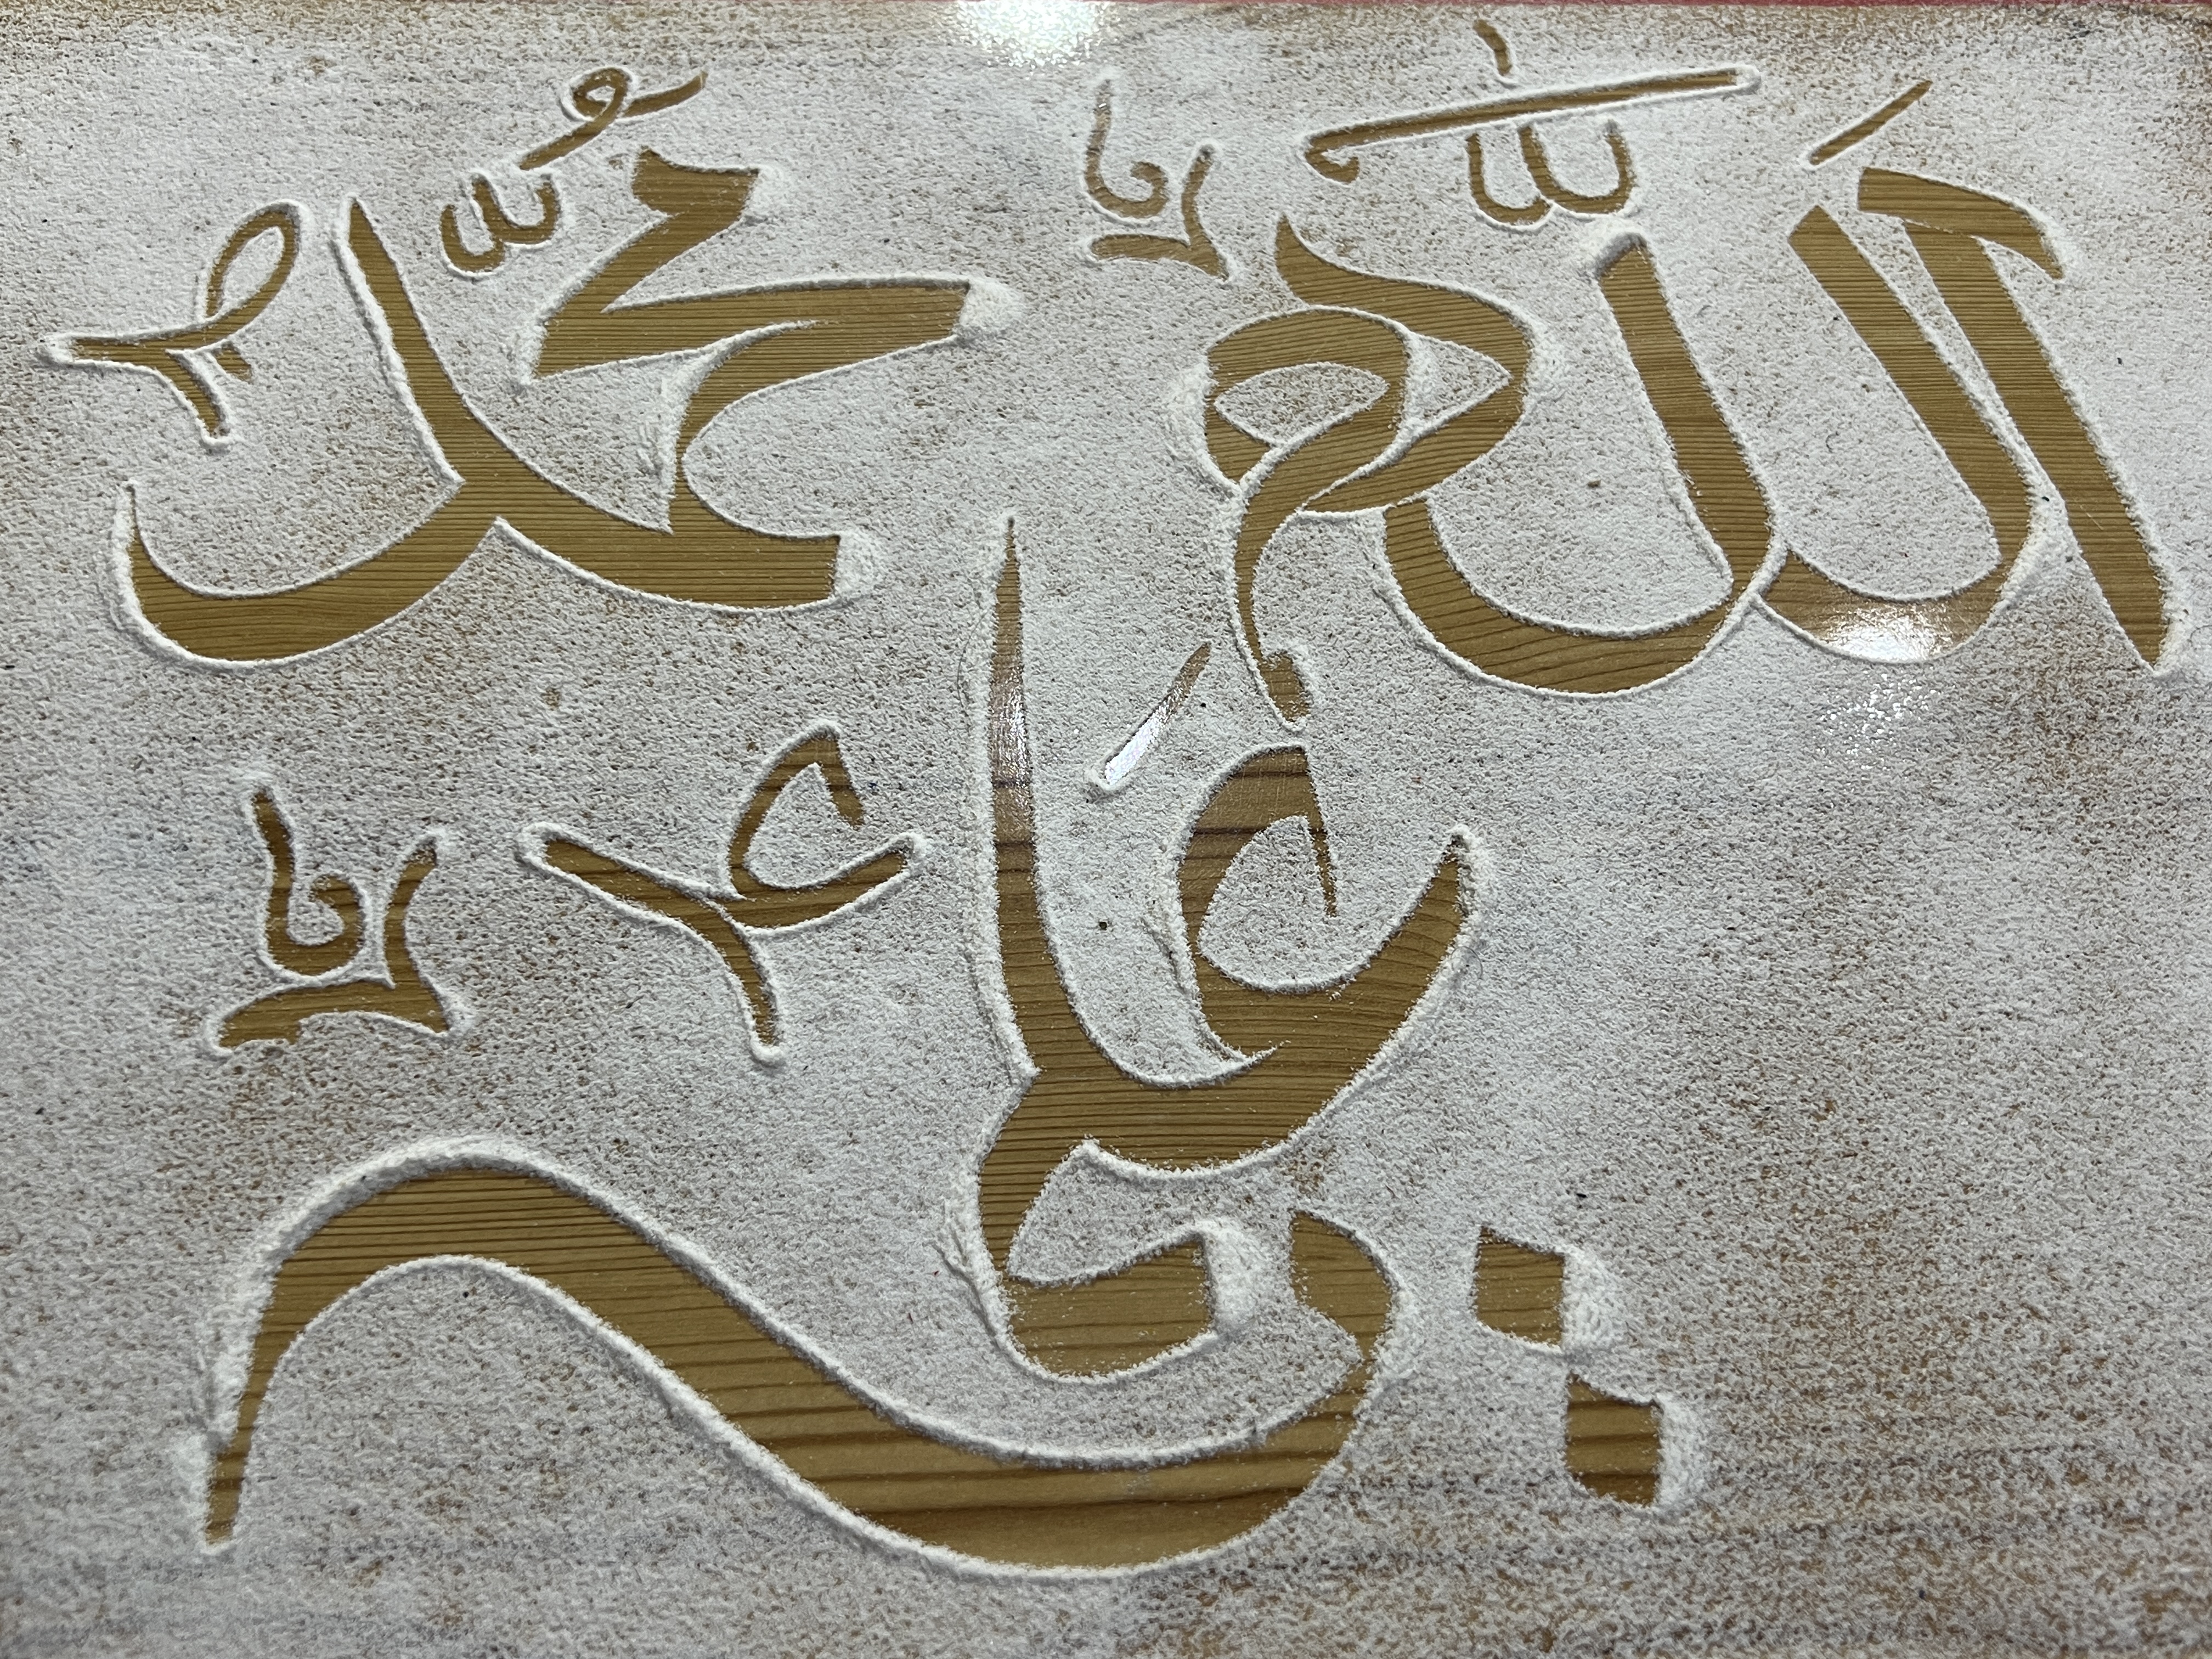 الله محمد
علي